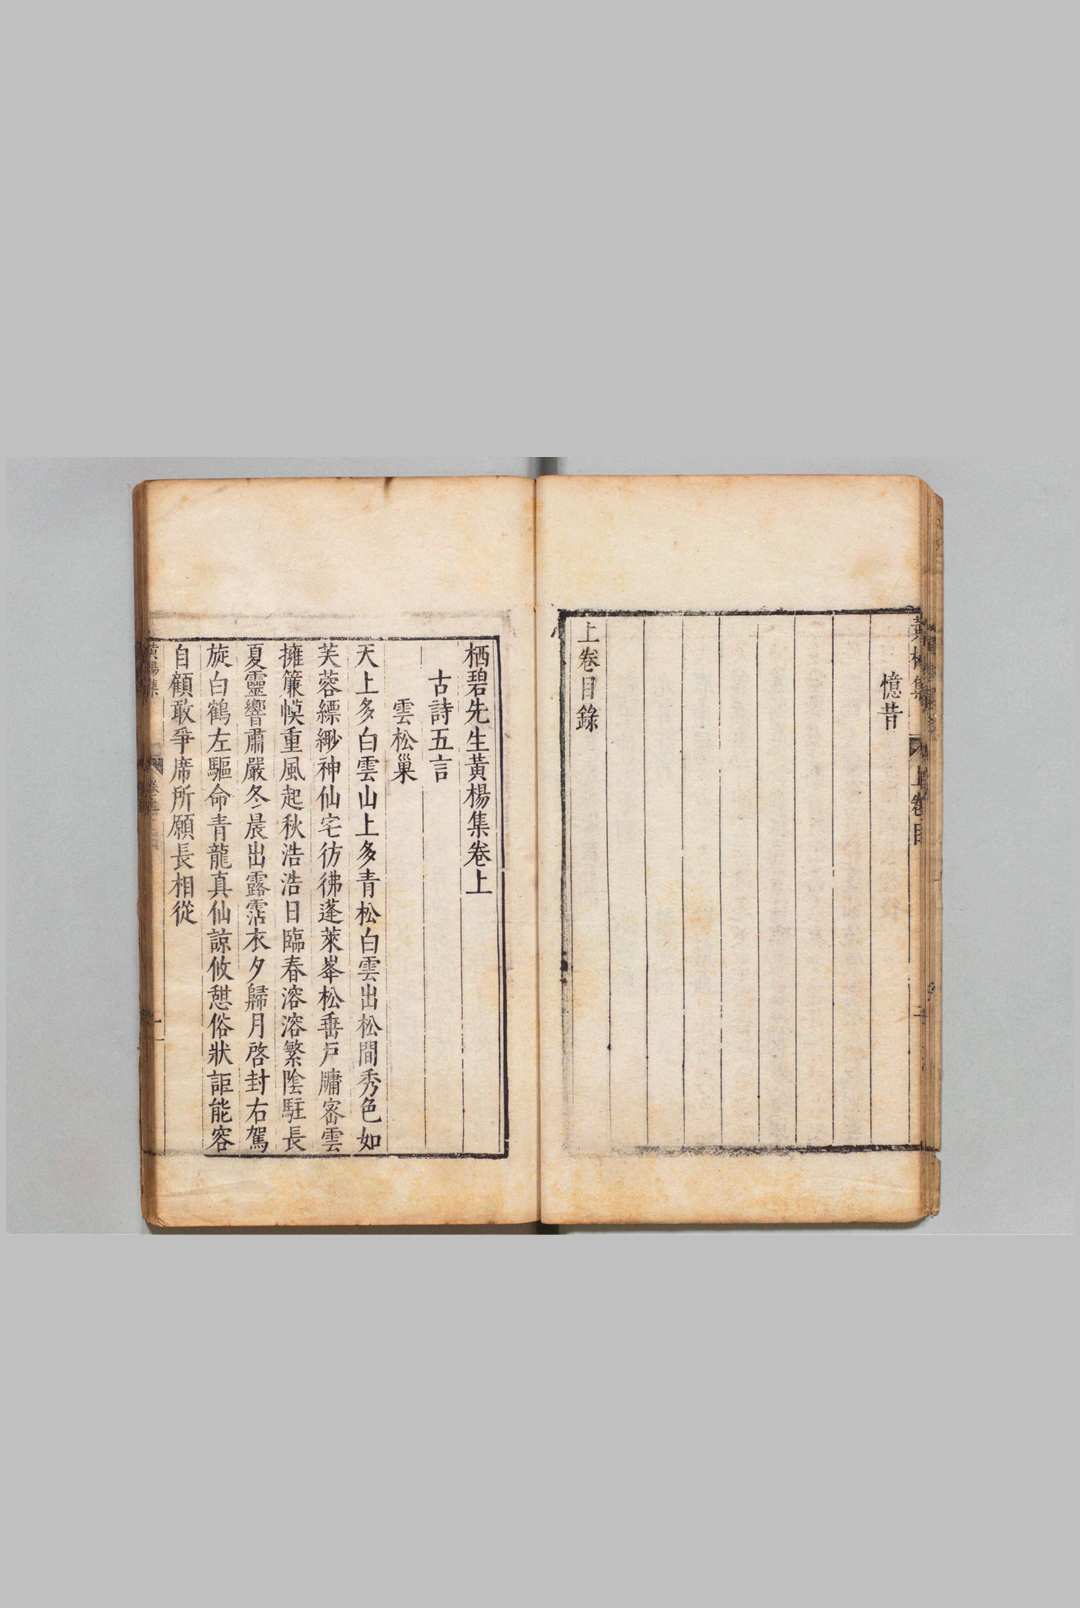 憶昔
上卷目錄
栖碧先生黃楊集卷上
古詩五言
雲松巢
天上多白雲山上多青松白雲出松間秀色如
芙蓉縹緲神仙宅彷彿蓬萊峯松垂戶牖密雲
擁簾幙重風起秋浩浩日臨春溶溶繁陰駐長
夏靈響肅嚴冬晨出露霑衣夕歸月啓封右駕
旋白鶴左驅命青龍真仙諒攸憇俗狀詎能容
自顧敢爭席所願長相從